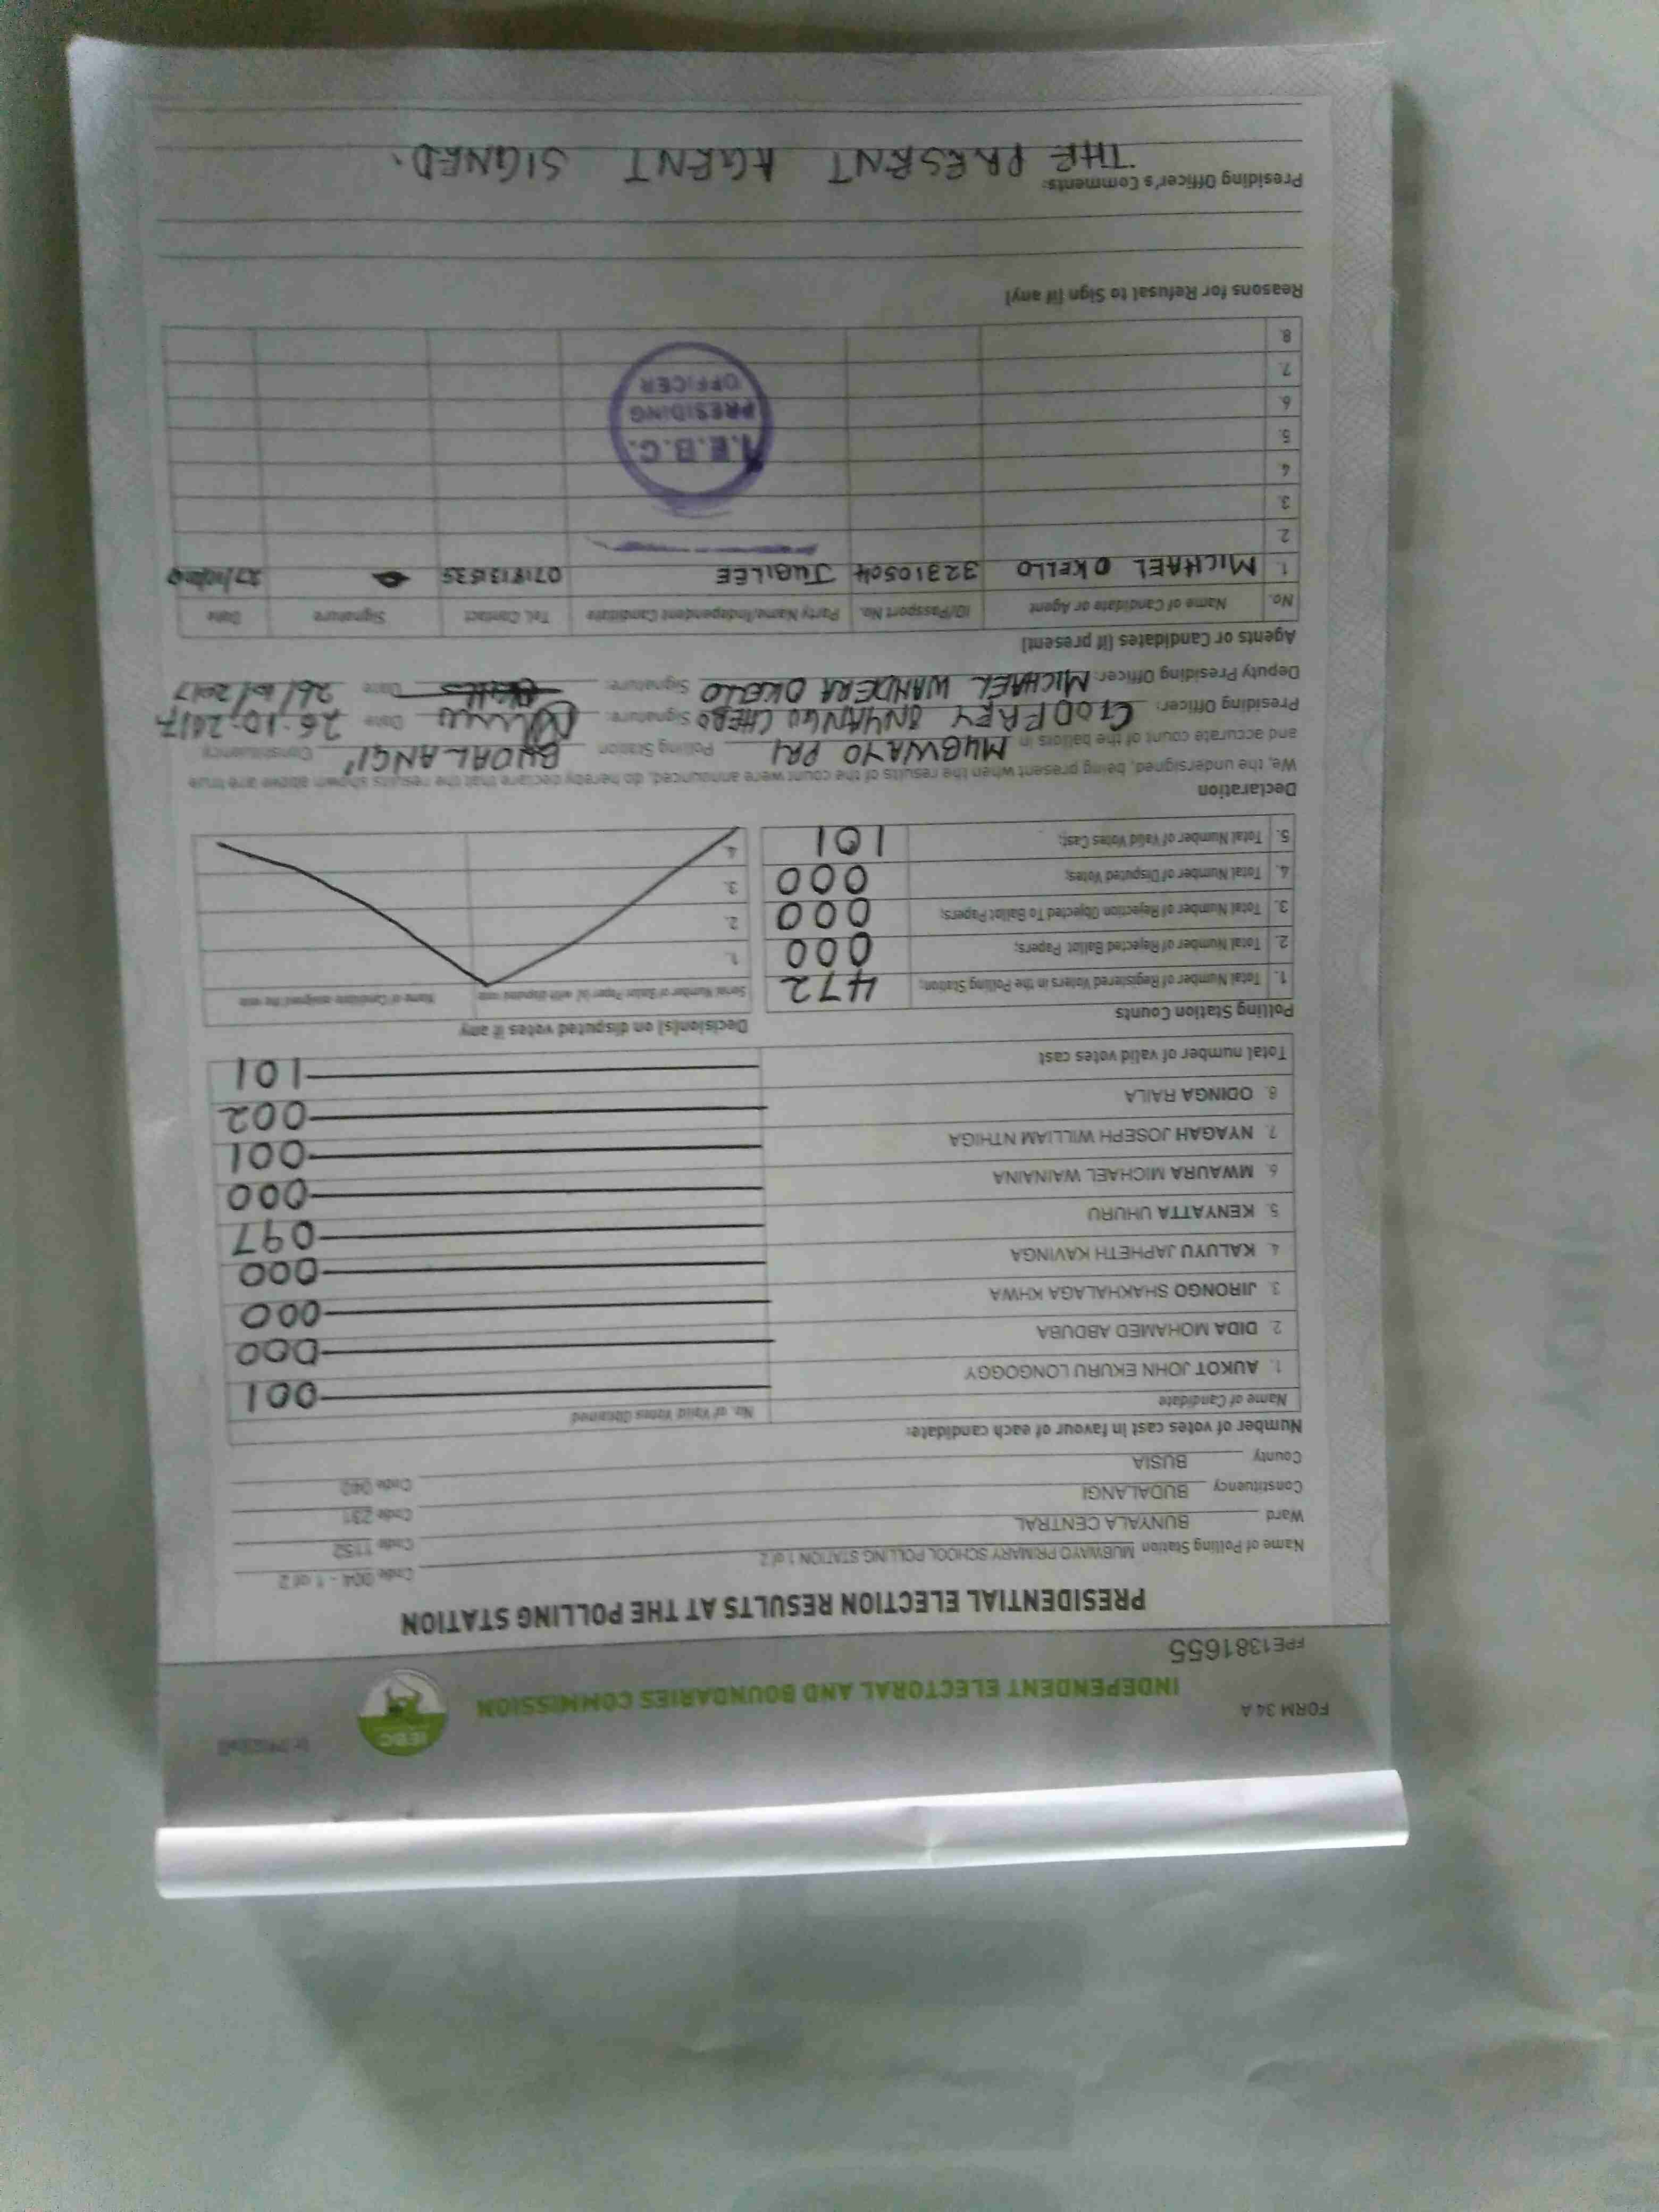 FORM 34 A
INDEPENDENT ELECTORAL AND BOUNDARIES COMMISSION
IEBC
FPE1381655
PRESIDENTIAL ELECTION RESULTS AT THE POLLING STATION
Name of Polling Station MUBWAYO PRIMARY SCHOOL POLLING STATION 1 of 2 Code 004 - 1 of 2
Ward BUNYALA CENTRAL Code 1152
Constituency BUDALANGI Code 231
County BUSIA Code 040
Number of votes cast in favour of each candidate:
Name of Candidate No. of Valid Votes Obtained
1. AUKOT JOHN EKURU LONGOGGY 001
2. DIDA MOHAMED ABDUBA 000
3. JIRONGO SHAKHALAGA KHWA 000
4. KALUYU JAPHETH KAVINGA 000
5. KENYATTA UHURU 097
6. MWAURA MICHAEL WAINAINA 000
7. NYAGAH JOSEPH WILLIAM NTHIGA 001
8. ODINGA RAILA 002
Total number of valid votes cast 101
Polling Station Counts Decision(s) on disputed votes if any
1. Total Number of Registered Voters in the Polling Station; 472
2. Total Number of Rejected Ballot Papers; 000
3. Total Number of Rejection Objected To Ballot Papers; 000
4. Total Number of Disputed Votes; 000
5. Total Number of Valid Votes Cast; 101
Serial Number of Ballot Paper (s) with disputed vote Name of Candidate assigned the vote
1.
2.
3.
4.
Declaration
We, the undersigned, being present when the results of the count were announced, do hereby declare that the results shown above are true
and accurate count of the ballots in MUBWAYO PRI Polling Station BUDALANGI Constituency
Presiding Officer: GODFREY ONYANGO CHEBO Signature: Date 26.10.2017
Deputy Presiding Officer: MICHAEL WANDERA OKELLO Signature: Date 26/10/2017
Agents or Candidates (if present)
No. Name of Candidate or Agent ID/Passport No. Party Name/Independent Candidate Tel. Contact Signature Date
1. MICHAEL OKELLO 32310504 JUBILEE 0718131535
2.
3.
4.
5.
6.
7.
8.
I.E.B.C.
PRESIDING
OFFICER
Reasons for Refusal to Sign (if any)
Presiding Officer's Comments: THE PRESENT AGENT SIGNED.